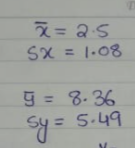 x̅ = 2.5
Sx = 1.08
y̅ = 8.36
Sy = 5.49